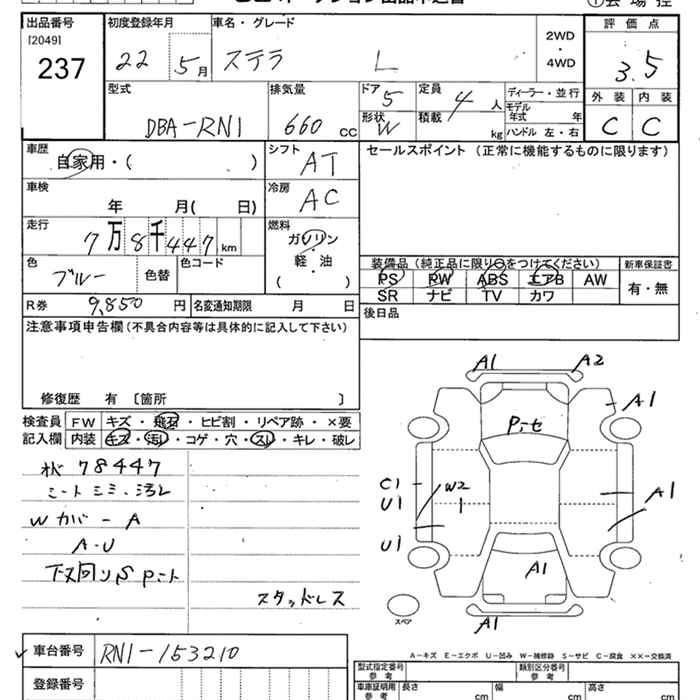 出品番号
[2049]
237
初度登録年月
22 5月
車名・グレード
ステラ L
2WD
・
4WD
評価点
3.5
外装 内装
C C
型式
DBA-RN1
排気量
660 cc
ドア 5
形状 W
定員 4 人
積載 kg
ディーラー・並行
モデル年式 年
ハンドル 左・右
車歴
自家用・( )
シフト
AT
セールスポイント(正常に機能するものに限ります)
車検
年 月( 日)
冷房
AC
走行
7万8千447km
燃料
ガソリン
・
軽・油
( )
色
ブルー
色替
色コード
装備品(純正品に限り○をつけてください)
PS PW ABS エアB AW
SR ナビ TV カワ
新車保証書
有・無
R券 9,850円
名変通知期限 月 日
後日品
注意事項申告欄(不具合内容等は具体的に記入して下さい)
修復歴 有 〔箇所 〕
検査員
記入欄
FW キズ・飛石・ヒビ割・リペア跡・×要
内装 キズ・汚レ・コゲ・穴・スレ・キレ・破レ
78447
シートシミ・汚レ
Wカバ-A
A-U
下又回りS
スタッドレス
A1 A2
A1
C1
U1
W2
1
A1
U1
A1
A1
スペア
A-キズ E-エクボ U-凹み W-補修跡 S-サビ C-腐食 ××-交換済
車台番号 RN1-153210
登録番号
型式指定番号
参考
類別区分番号
参考
車庫証明用
参考
長さ cm
幅 cm
高さ cm